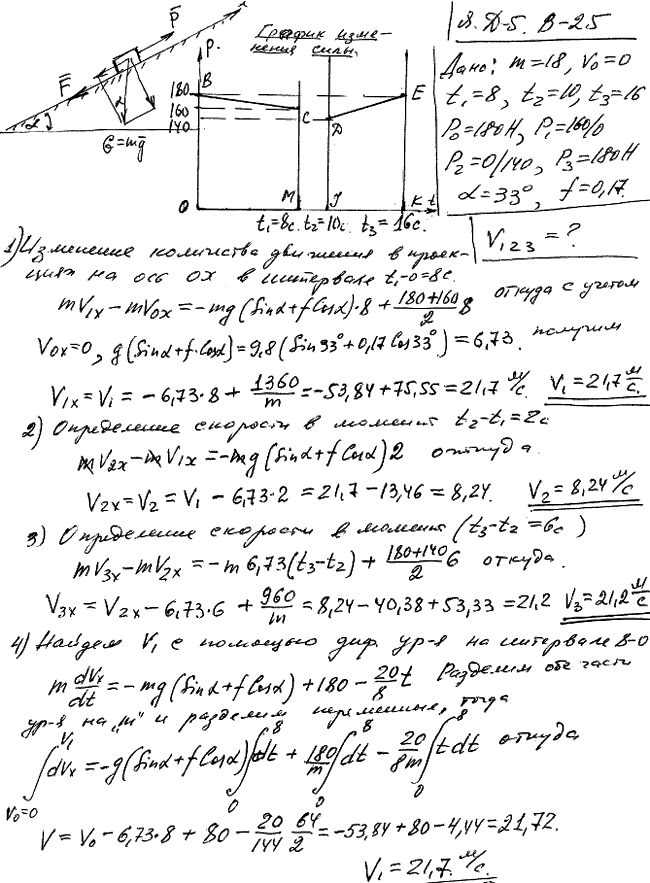 График изме-
нения силы.
P̄
x
P.
F̄
α
α
Ḡ=mḡ
180
160
140
0
B
C
D
E
M
J
K t
t₁=8с. t₂=10с. t₃=16с.
Я. Д-5. В-25
Дано: m=18, V₀=0
t₁=8, t₂=10, t₃=16
P₀=180Н, P₁=160/0
P₂=0/140, P₃=180Н
α=33°, f=0,17.
V₁₂₃=?
1) Изменение количства движения в проек-
циях на ось OX в интервале t₁-0=8с.
mV₁ₓ-mV₀ₓ=-mg(Sinα+fCosα)·8+(180+160)/2 8 откуда с учетом
V₀ₓ=0, g(Sinα+f·Cosα)=9,8(Sin33°+0,17Cos33°)=6,73. получим
V₁ₓ=V₁=-6,73·8+1360/m=-53,84+75,55=21,7 м/с. V₁=21,7 м/с.
2) Определение скорости в момент t₂-t₁=2с
mV₂ₓ-mV₁ₓ=-mg(Sinα+fCosα)2 откуда.
V₂ₓ=V₂=V₁-6,73·2=21,7-13,46=8,24. V₂=8,24 м/с
3) Определение скорости в момент (t₃-t₂=6с)
mV₃ₓ-mV₂ₓ=-m6,73(t₃-t₂)+(180+140)/2 6 откуда.
V₃ₓ=V₂ₓ-6,73·6+960/m=8,24-40,38+53,33=21,2 V₃=21,2 м/с
4) Найдем V₁ с помощью диф. ур-я на интервале 8-0
m dVₓ/dt=-mg(Sinα+fCosα)+180-20/8 t Разделим обе части
ур-я на „m" и разделим переменные, тогда
∫(V₀=0…V₁) dVₓ=-g(Sinα+fCosα)∫(0…8) dt+180/m ∫(0…8) dt-20/8m ∫(0…8) tdt откуда
V=V₀-6,73·8+80-20/144 64/2=-53,84+80-4,44=21,72.
V₁=21,7. м/с.